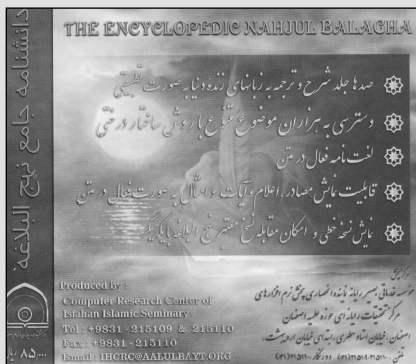 THE ENCYCLOPEDIC NAHJUL BALAGHA
دانشنامه جامع نهج البلاغه
صدها جلد شرح و ترجمه به زبانهای زنده دنیا به صورت تطبیقی
دسترسی به هزاران موضوع متنوع با روش ساختار درختی
لغت نامه فعال در متن
قابلیت نمایش مصادر، اعلام، آیات و امثال به صورت فعال در متن
نمایش نسخه خطی و امکان مقابله نسخ معتبر نهج البلاغه با یکدیگر
Produced by :
Computer Research Center of
Isfahan Islamic Seminary
Tel : +9831 - 215109 & 215110
Fax : +9831 - 215110
Email : IHCRC@AALULBAYT.ORG
مرکز پخش
مؤسسه خدماتی بصیر رایانه نماینده انحصاری پخش نرم افزارهای
مرکز تحقیقات رایانه ای حوزه علمیه اصفهان
اصفهان، خیابان استاد مطهری، ابتدای خیابان اردیبهشت،
۸۵۰۰۰ ریال